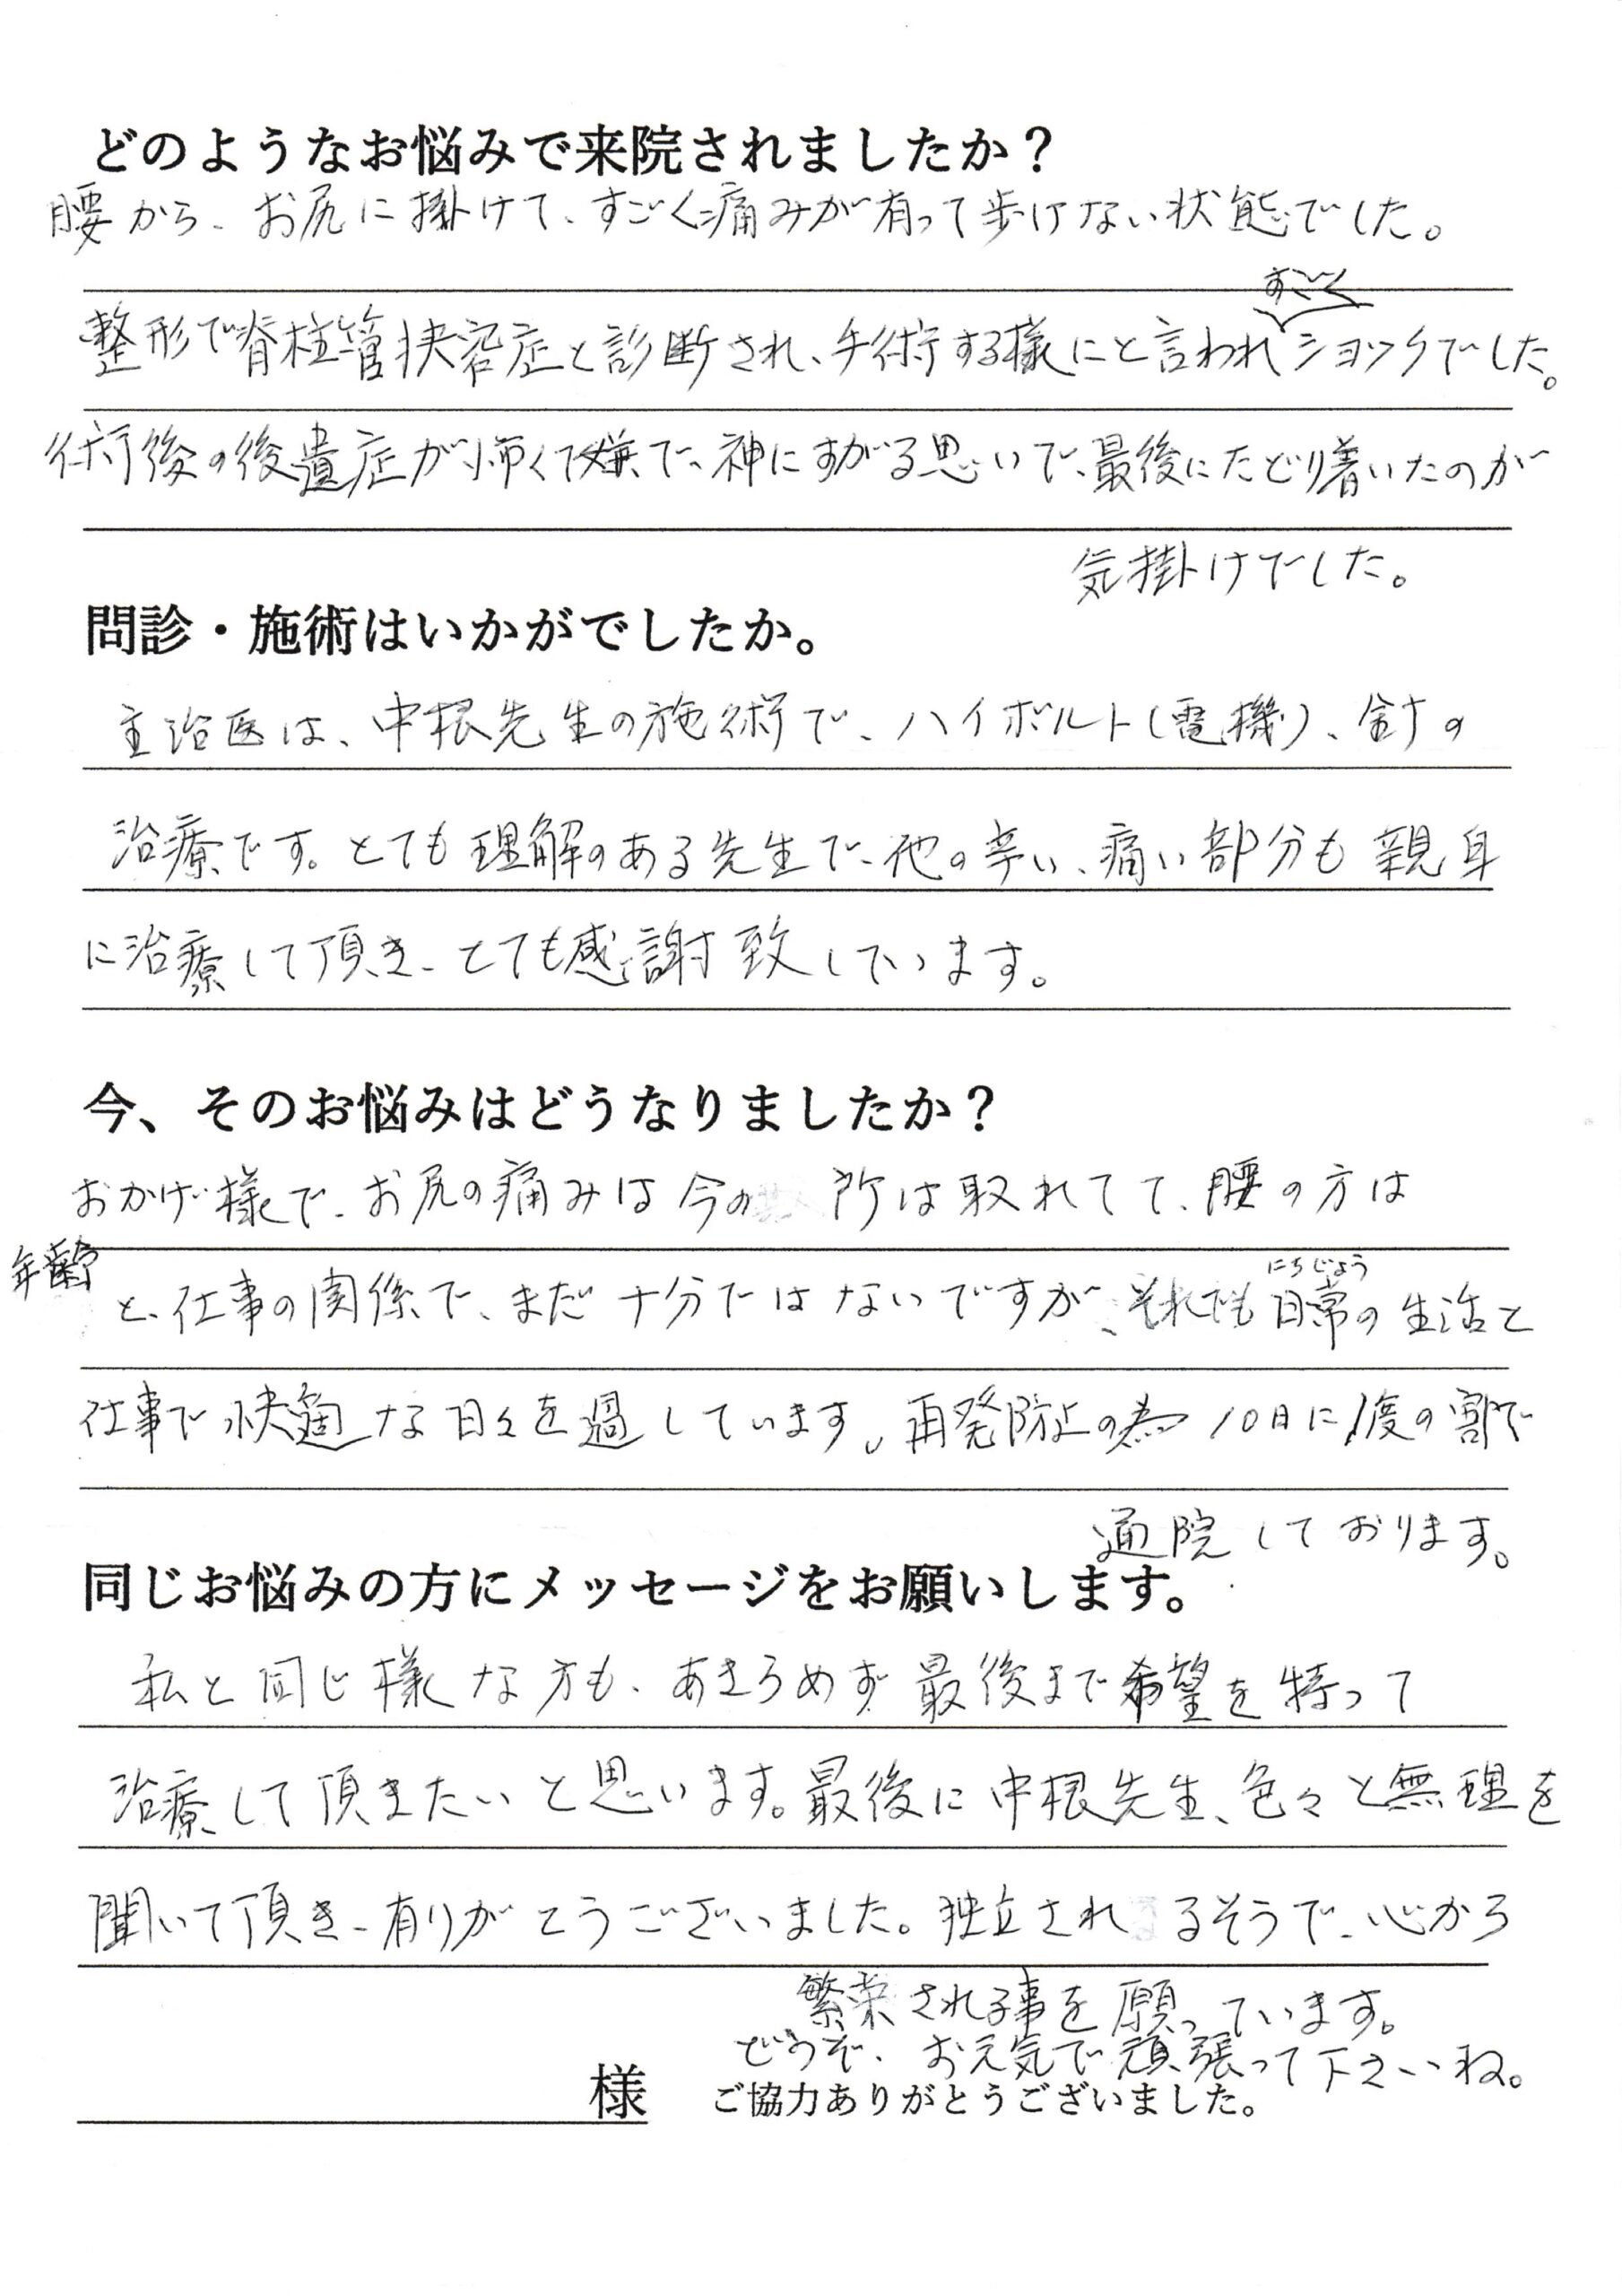 どのようなお悩みで来院されましたか？
腰から、お尻に掛けて、すごく痛みが有って歩けない状態でした。
すごく
整形で脊柱管狭窄症と診断され、手術する様にと言われショックでした。
術後の後遺症が怖くて嫌で、神にすがる思いで、最後にたどり着いたのが
気掛けでした。
問診・施術はいかがでしたか。
主治医は、中根先生の施術で、ハイボルト(電機)、針の
治療です。とても理解のある先生で、他の辛い、痛い部分も親身
に治療して頂き、とても感謝致しています。
今、そのお悩みはどうなりましたか？
おかげ様で、お尻の痛みは今の所は取れてて、腰の方は
にちじょう
年齢と、仕事の関係で、まだ十分ではないですが、それでも日常の生活と
仕事で快適な日々を過しています。再発防止の為10日に1度の割で
通院しております。
同じお悩みの方にメッセージをお願いします。
私と同じ様な方も、あきらめず最後まで希望を持って
治療して頂きたいと思います。最後に中根先生、色々と無理を
聞いて頂き、有りがとうございました。独立されるそうで、心から
繁栄される事を願っています。
どうぞ、お元気で頑張って下さいね。
様 ご協力ありがとうございました。